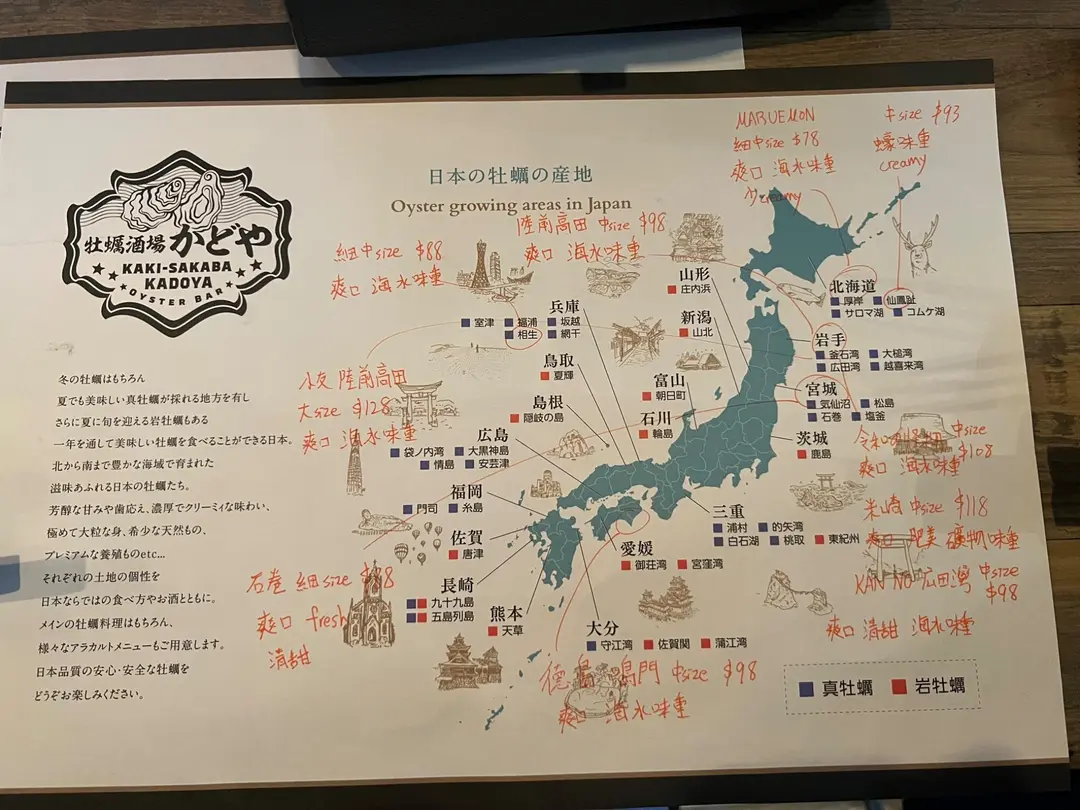 牡蠣酒場 かどや
KAKI-SAKABA
KADOYA
OYSTER BAR
日本の牡蠣の産地
Oyster growing areas in Japan
MARUEMON
細中size $78
爽口 海水味重
少creamy
中size $93
蠔味重
creamy
陸前高田 中size $98
爽口 海水味重
細中size $88
爽口 海水味重
冬の牡蠣はもちろん
夏でも美味しい真牡蠣が採れる地方を有し
さらに夏に旬を迎える岩牡蠣もある
一年を通して美味しい牡蠣を食べることができる日本。
北から南まで豊かな海域で育まれた
滋味あふれる日本の牡蠣たち。
芳醇な甘みや歯応え、濃厚でクリーミィな味わい、
極めて大粒な身、希少な天然もの、
プレミアムな養殖ものetc...
それぞれの土地の個性を
日本ならではの食べ方やお酒とともに。
メインの牡蠣料理はもちろん、
様々なアラカルトメニューもご用意します。
日本品質の安心・安全な牡蠣を
どうぞお楽しみください。
山形
庄内浜
北海道
厚岸 仙鳳趾
サロマ湖 コムケ湖
兵庫
室津 福浦 坂越
相生 網干
新潟
山北
岩手
釜石湾 大槌湾
広田湾 越喜来湾
鳥取
夏輝
富山
朝日町
宮城
気仙沼 松島
石巻 塩釜
島根
隠岐の島
石川
輪島
茨城
鹿島
広島
袋ノ内湾 大黒神島
情島 安芸津
福岡
門司 糸島
三重
浦村 的矢湾
白石湖 桃取 東紀州
佐賀
唐津
愛媛
御荘湾 宮窪湾
長崎
九十九島
五島列島
熊本
天草
大分
守江湾 佐賀関 蒲江湾
陸前高田
大size $128
爽口 海水味重
中size
$108
爽口 海水味重
米崎 中size $118
爽口 肥美 礦物味重
KAN NO 広田灣 中size
$98
爽口 清甜 海水味重
石巻 細size
爽口 fresh
清甜
徳島 鳴門 中size $98
爽口 海水味重
真牡蠣 岩牡蠣